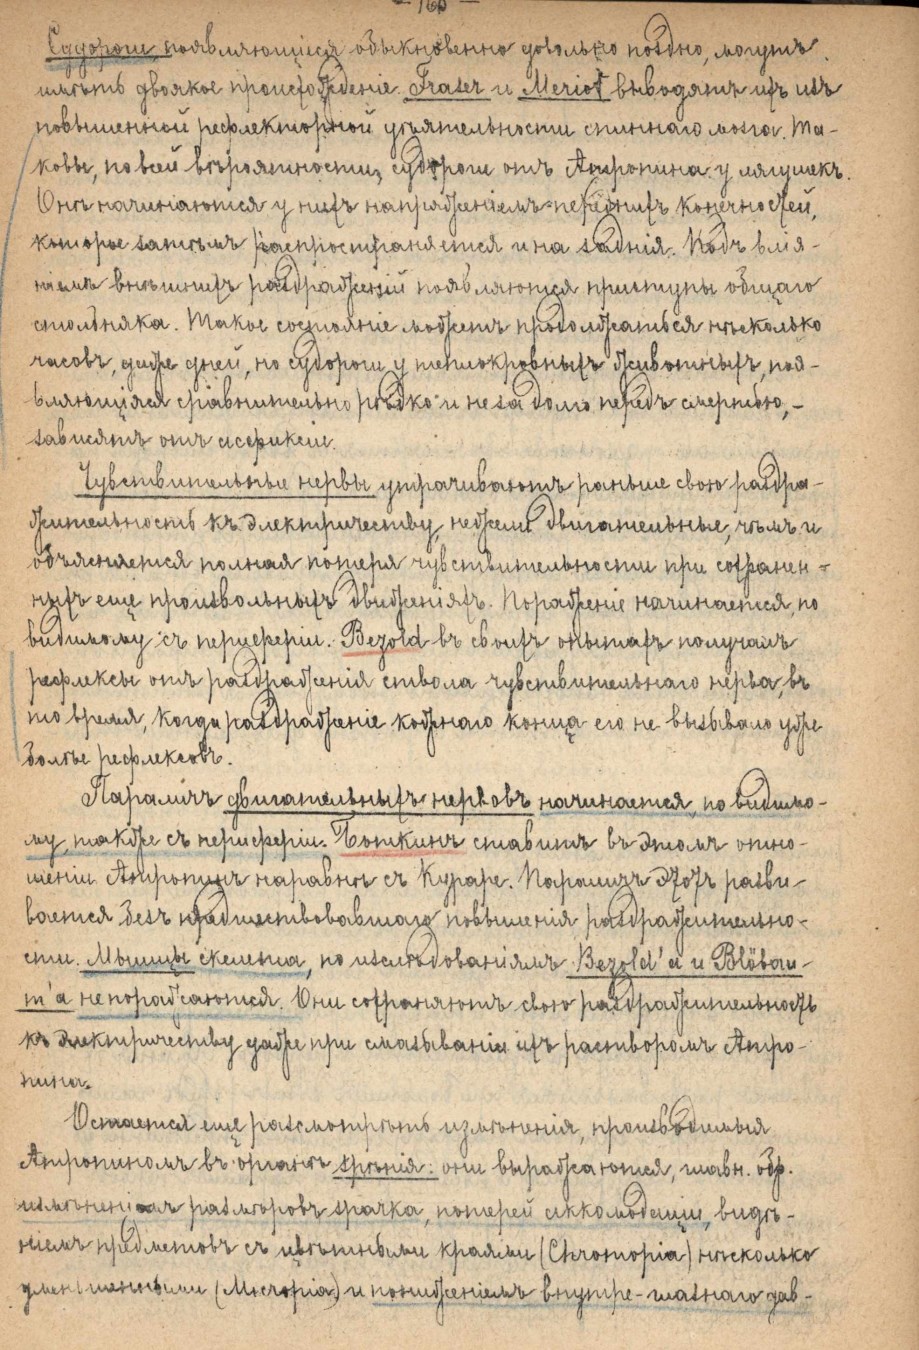 – 160 –
Судороги появляющіяся обыкновенно довольно поздно, могутъ
имѣть двоякое происхожденіе. Fraser и Meriot выводятъ ихъ изъ
повышенной рефлекторной дѣятельности спиннаго мозга. Та-
ковы, по всей вѣроятности, судороги отъ Атропина у лягушекъ.
Онѣ начинаются у нихъ напряженіемъ переднихъ конечностей,
которое затѣмъ распространяется и на заднія. Подъ влія-
ніемъ внѣшнихъ раздраженій появляются приступы общаго
столбняка. Такое состояніе можетъ продолжаться нѣсколько
часовъ, даже дней, но судороги у теплокровныхъ животныхъ, поя-
вляющіяся сравнительно рѣдко и не за долго передъ смертью, –
зависятъ отъ асфиксіи.
Чувствительные нервы утрачиваютъ раньше свою раздра-
жительность къ электричеству, нежели двигательные, чѣмъ и
объясняется полная потеря чувствительности при сохранен-
ныхъ еще произвольныхъ движеніяхъ. Пораженіе начинается, по
видимому съ периферіи. Bezold въ своихъ опытахъ получалъ
рефлексы отъ раздраженія ствола чувствительнаго нерва, въ
то время, когда раздраженіе кожнаго конца его не вызывало уже
болѣе рефлексовъ.
Параличъ двигательныхъ нервовъ начинается, по видимо-
му, также съ периферіи. Боткинъ ставитъ въ этомъ отно-
шеніи Атропинъ наравнѣ съ Кураре. Параличъ этотъ разви-
вается безъ предшествовавшаго повышенія раздражительно-
сти. Мышцы скелета, по изслѣдованіямъ Bezold'а и Blöbau-
m'а не поражаются. Они сохраняютъ свою раздражительность
къ электричеству даже при смазываніи ихъ растворомъ Атро-
пина.
Остается еще разсмотрѣть измѣненія, производимыя
Атропиномъ въ органѣ зрѣнія: они выражаются, главн. обр.
измѣненіемъ размѣровъ зрачка, потерей аккомодаціи, видѣ-
ніемъ предметовъ съ цвѣтными краями (Chromopia) нѣсколько
уменьшенными (Micropia) и пониженіемъ внутри-глазнаго дав-